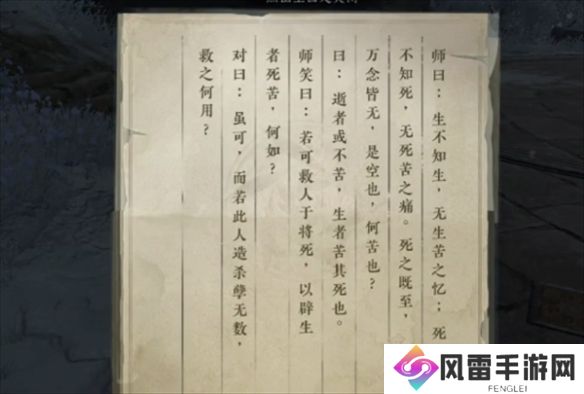 师曰：生不知生，无生苦之忆；死
不知死，无死苦之痛。死之既至，
万念皆无，是空也，何苦也？
曰：逝者或不苦，生者苦其死也。
师笑曰：若可救人于将死，以辟生
者死苦，何如？
对曰：虽可，而若此人造杀孽无数，
救之何用？
风雷手游网
FENGLEI